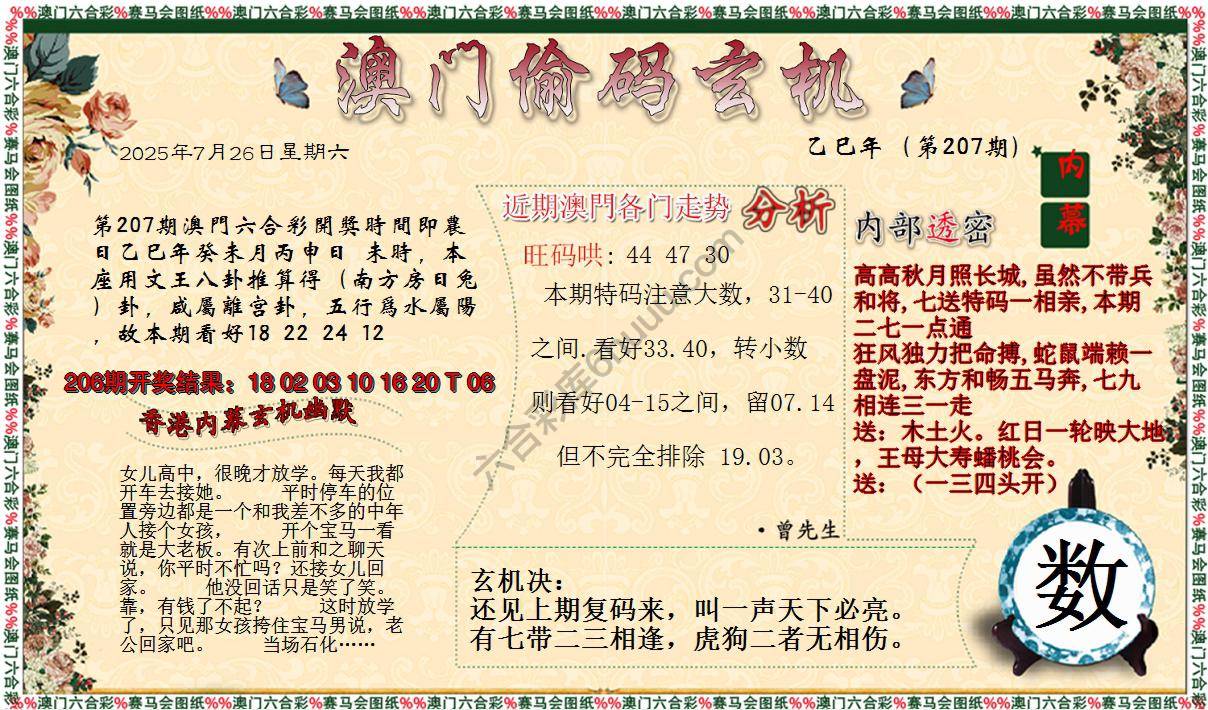 %%澳门六合彩%赛马会图纸%%澳门六合彩%赛马会图纸%%澳门六合彩%赛马会图纸%%澳门六合彩%赛马会图纸
澳门偷码玄机
2025年7月26日星期六
乙巳年（第207期）
内幕
第207期澳門六合彩開獎時間即農
日乙巳年癸未月丙申日 未時，本
座用文王八卦推算得（南方房日兔
）卦，咸屬離宫卦，五行爲水屬陽
，故本期看好18 22 24 12
206期开奖结果：18 02 03 10 16 20 T 06
香港内幕玄机幽默
女儿高中，很晚才放学。每天我都
开车去接她。 平时停车的位
置旁边都是一个和我差不多的中年
人接个女孩， 开个宝马一看
就是大老板。有次上前和之聊天
说，你平时不忙吗？还接女儿回
家。 他没回话只是笑了笑。
靠，有钱了不起？ 这时放学
了，只见那女孩挎住宝马男说，老
公回家吧。 当场石化……
近期澳門各门走势 分析
旺码哄：44 47 30
本期特码注意大数，31-40
之间.看好33.40，转小数
则看好04-15之间，留07.14
但不完全排除 19.03。
·曾先生
内部透密
高高秋月照长城,虽然不带兵
和将,七送特码一相亲,本期
二七一点通
狂风独力把命搏,蛇鼠端赖一
盘泥,东方和畅五马奔,七九
相连三一走
送：木土火。红日一轮映大地
，王母大寿蟠桃会。
送：（一三四头开）
玄机决：
还见上期复码来，叫一声天下必亮。
有七带二三相逢，虎狗二者无相伤。
数
%%澳门六合彩%赛马会图纸%%澳门六合彩%赛马会图纸%%澳门六合彩%赛马会图纸%%澳门六合彩%赛马会图纸